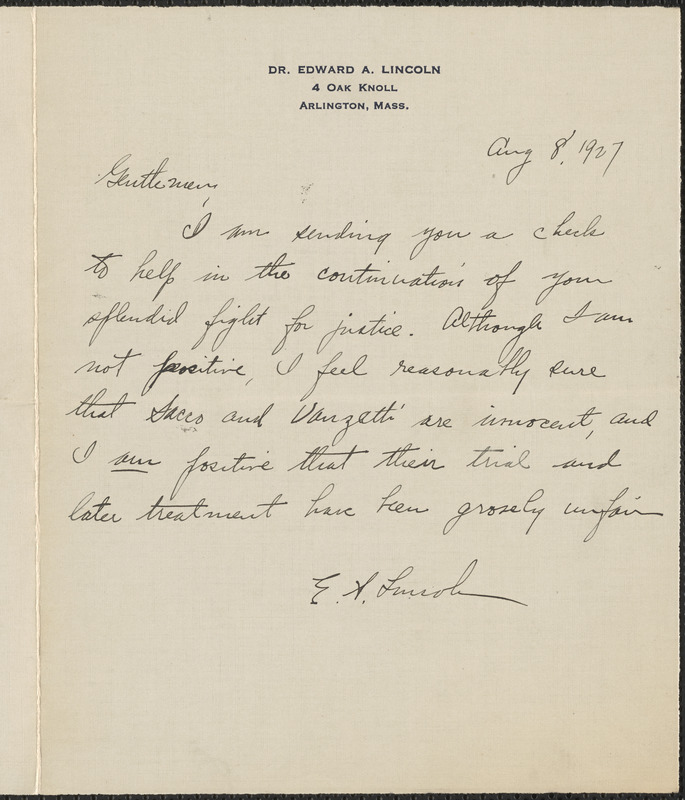 DR. EDWARD A. LINCOLN
4 OAK KNOLL
ARLINGTON, MASS.
Aug 8, 1927
Gentlemen,
I am sending you a check
to help in the continuation of your
splendid fight for justice. Although I am
not positive, I feel reasonably sure
that Sacco and Vanzetti are innocent, and
I am positive that their trial and
later treatment have been grossly unfair
E. A. Lincoln